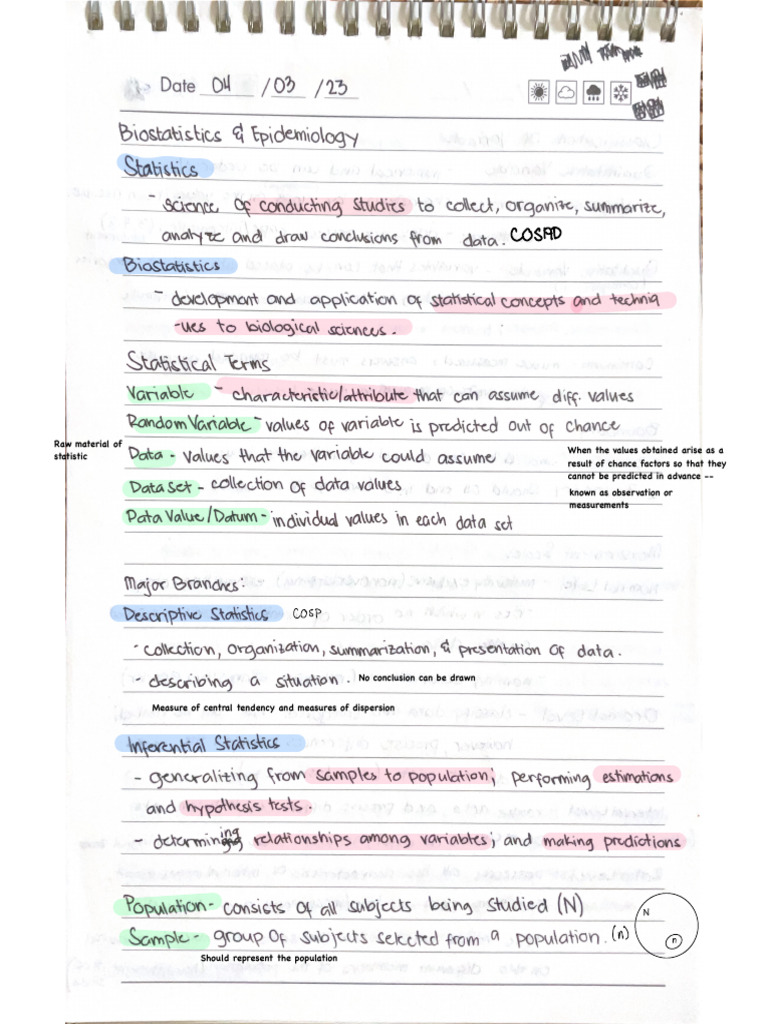 Date 04 / 03 / 23
Biostatistics & Epidemiology
Statistics
- science of conducting studies to collect, organize, summarize,
analyze and draw conclusions from data. COSAD
Biostatistics
- development and application of statistical concepts and techniq
-ues to biological sciences.
Statistical Terms
Variable - characteristic/attribute that can assume diff. values
Random Variable - values of variable is predicted out of chance
Raw material of
statistic
Data - values that the variable could assume
When the values obtained arise as a
result of chance factors so that they
cannot be predicted in advance --
known as observation or
measurements
Data Set - collection of data values
Data Value/Datum - individual values in each data set
Major Branches:
Descriptive Statistics COSP
- collection, organization, summarization, & presentation of data.
- describing a situation. No conclusion can be drawn
Measure of central tendency and measures of dispersion
Inferential Statistics
- generalizing from samples to population; performing estimations
and hypothesis tests.
- determining relationships among variables; and making predictions
Population - consists of all subjects being studied (N)
Sample - group of subjects selected from a population. (n)
N
n
Should represent the population